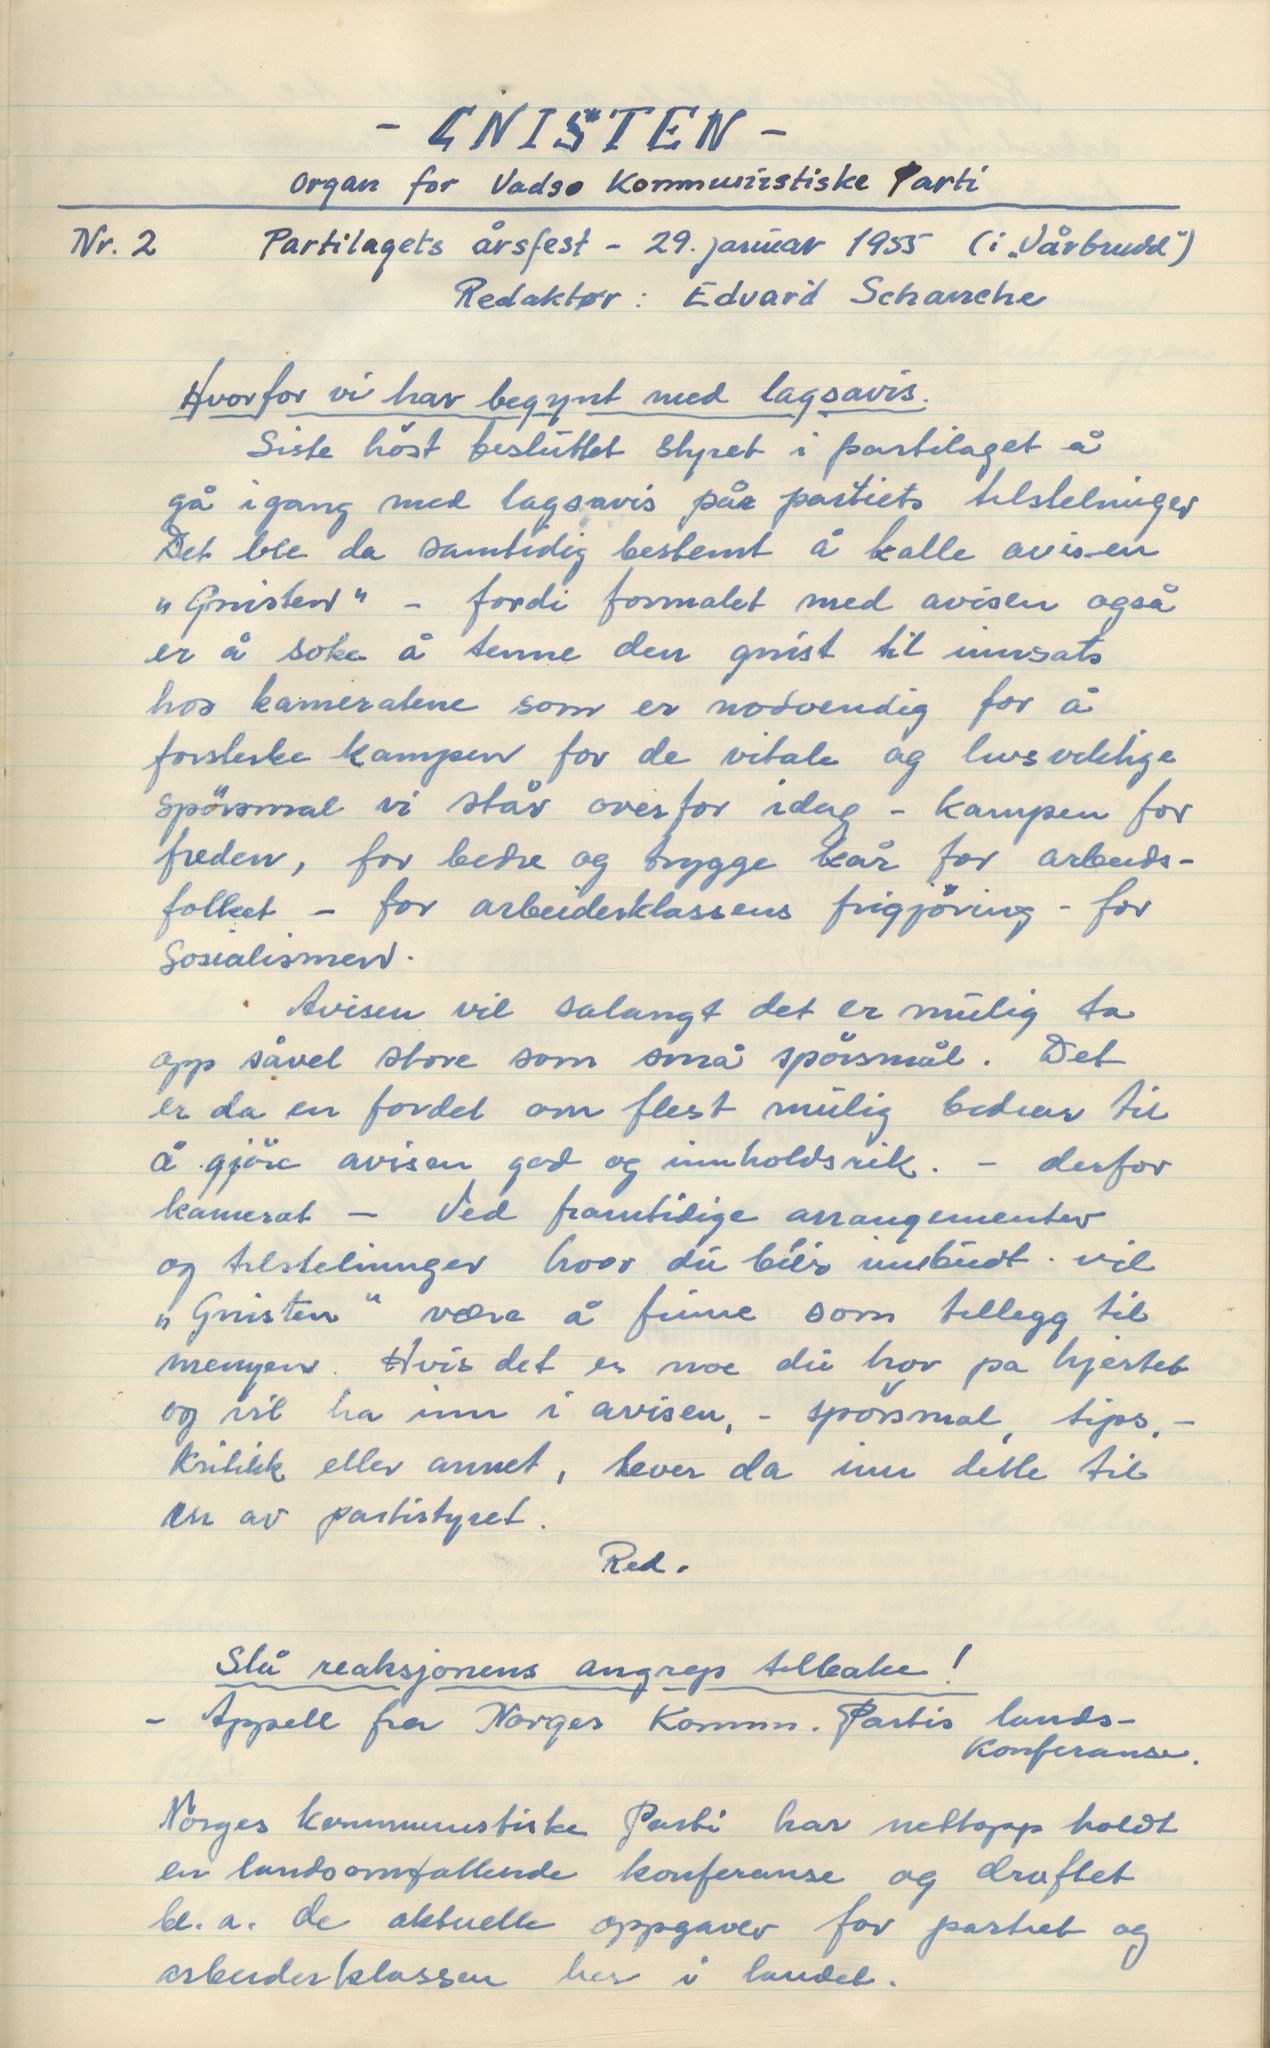 - GNISTEN -
organ for Vadsø Kommunistiske Parti
Nr. 2 Partilagets årsfest - 29. januar 1955 (i „Vårbrudd")
Redaktør: Edvard Schanche
Hvorfor vi har begynt med lagsavis.
Siste höst besluttet styret i partilaget å
gå igang med lagsavis på partiets tilstelninger
Det ble da samtidig bestemt å kalle avisen
„Gnisten" - fordi formalet med avisen også
er å soke å tenne den gnist til innsats
hos kameratene som er nodvendig for å
forsterke kampen for de vitale og livsviktige
spörsmal vi står overfor idag - kampen for
freden, for bedre og trygge kår for arbeids-
folket - for arbeiderklassens frigjöring - for
Sosialismen.
Avisen vil salangt det er mulig ta
opp såvel store som små spörsmål. Det
er da en fordel om flest mulig bedrar til
å gjöre avisen god og innholdsrik. - derfor
kamerat - Ved framtidige arrangementer
og tilstelninger hvor du blir innbudt. vil
„Gnisten" være å finne som tillegg til
menyen. Hvis det er noe du har pa hjertet
og vil ha inn i avisen, - spörsmal, tips, -
kritikk eller annet, lever da inn dette til
en av partistyret.
Red.
Slå reaksjonens angrep tilbake!
- Appell fra Norges Komm. Partis lands-
konferanse.
Norges kommunistiske Parti har nettopp holdt
en landsomfattende konferanse og droftet
bl. a. de aktuelle oppgaver for partiet og
arbeiderklassen her i landet.